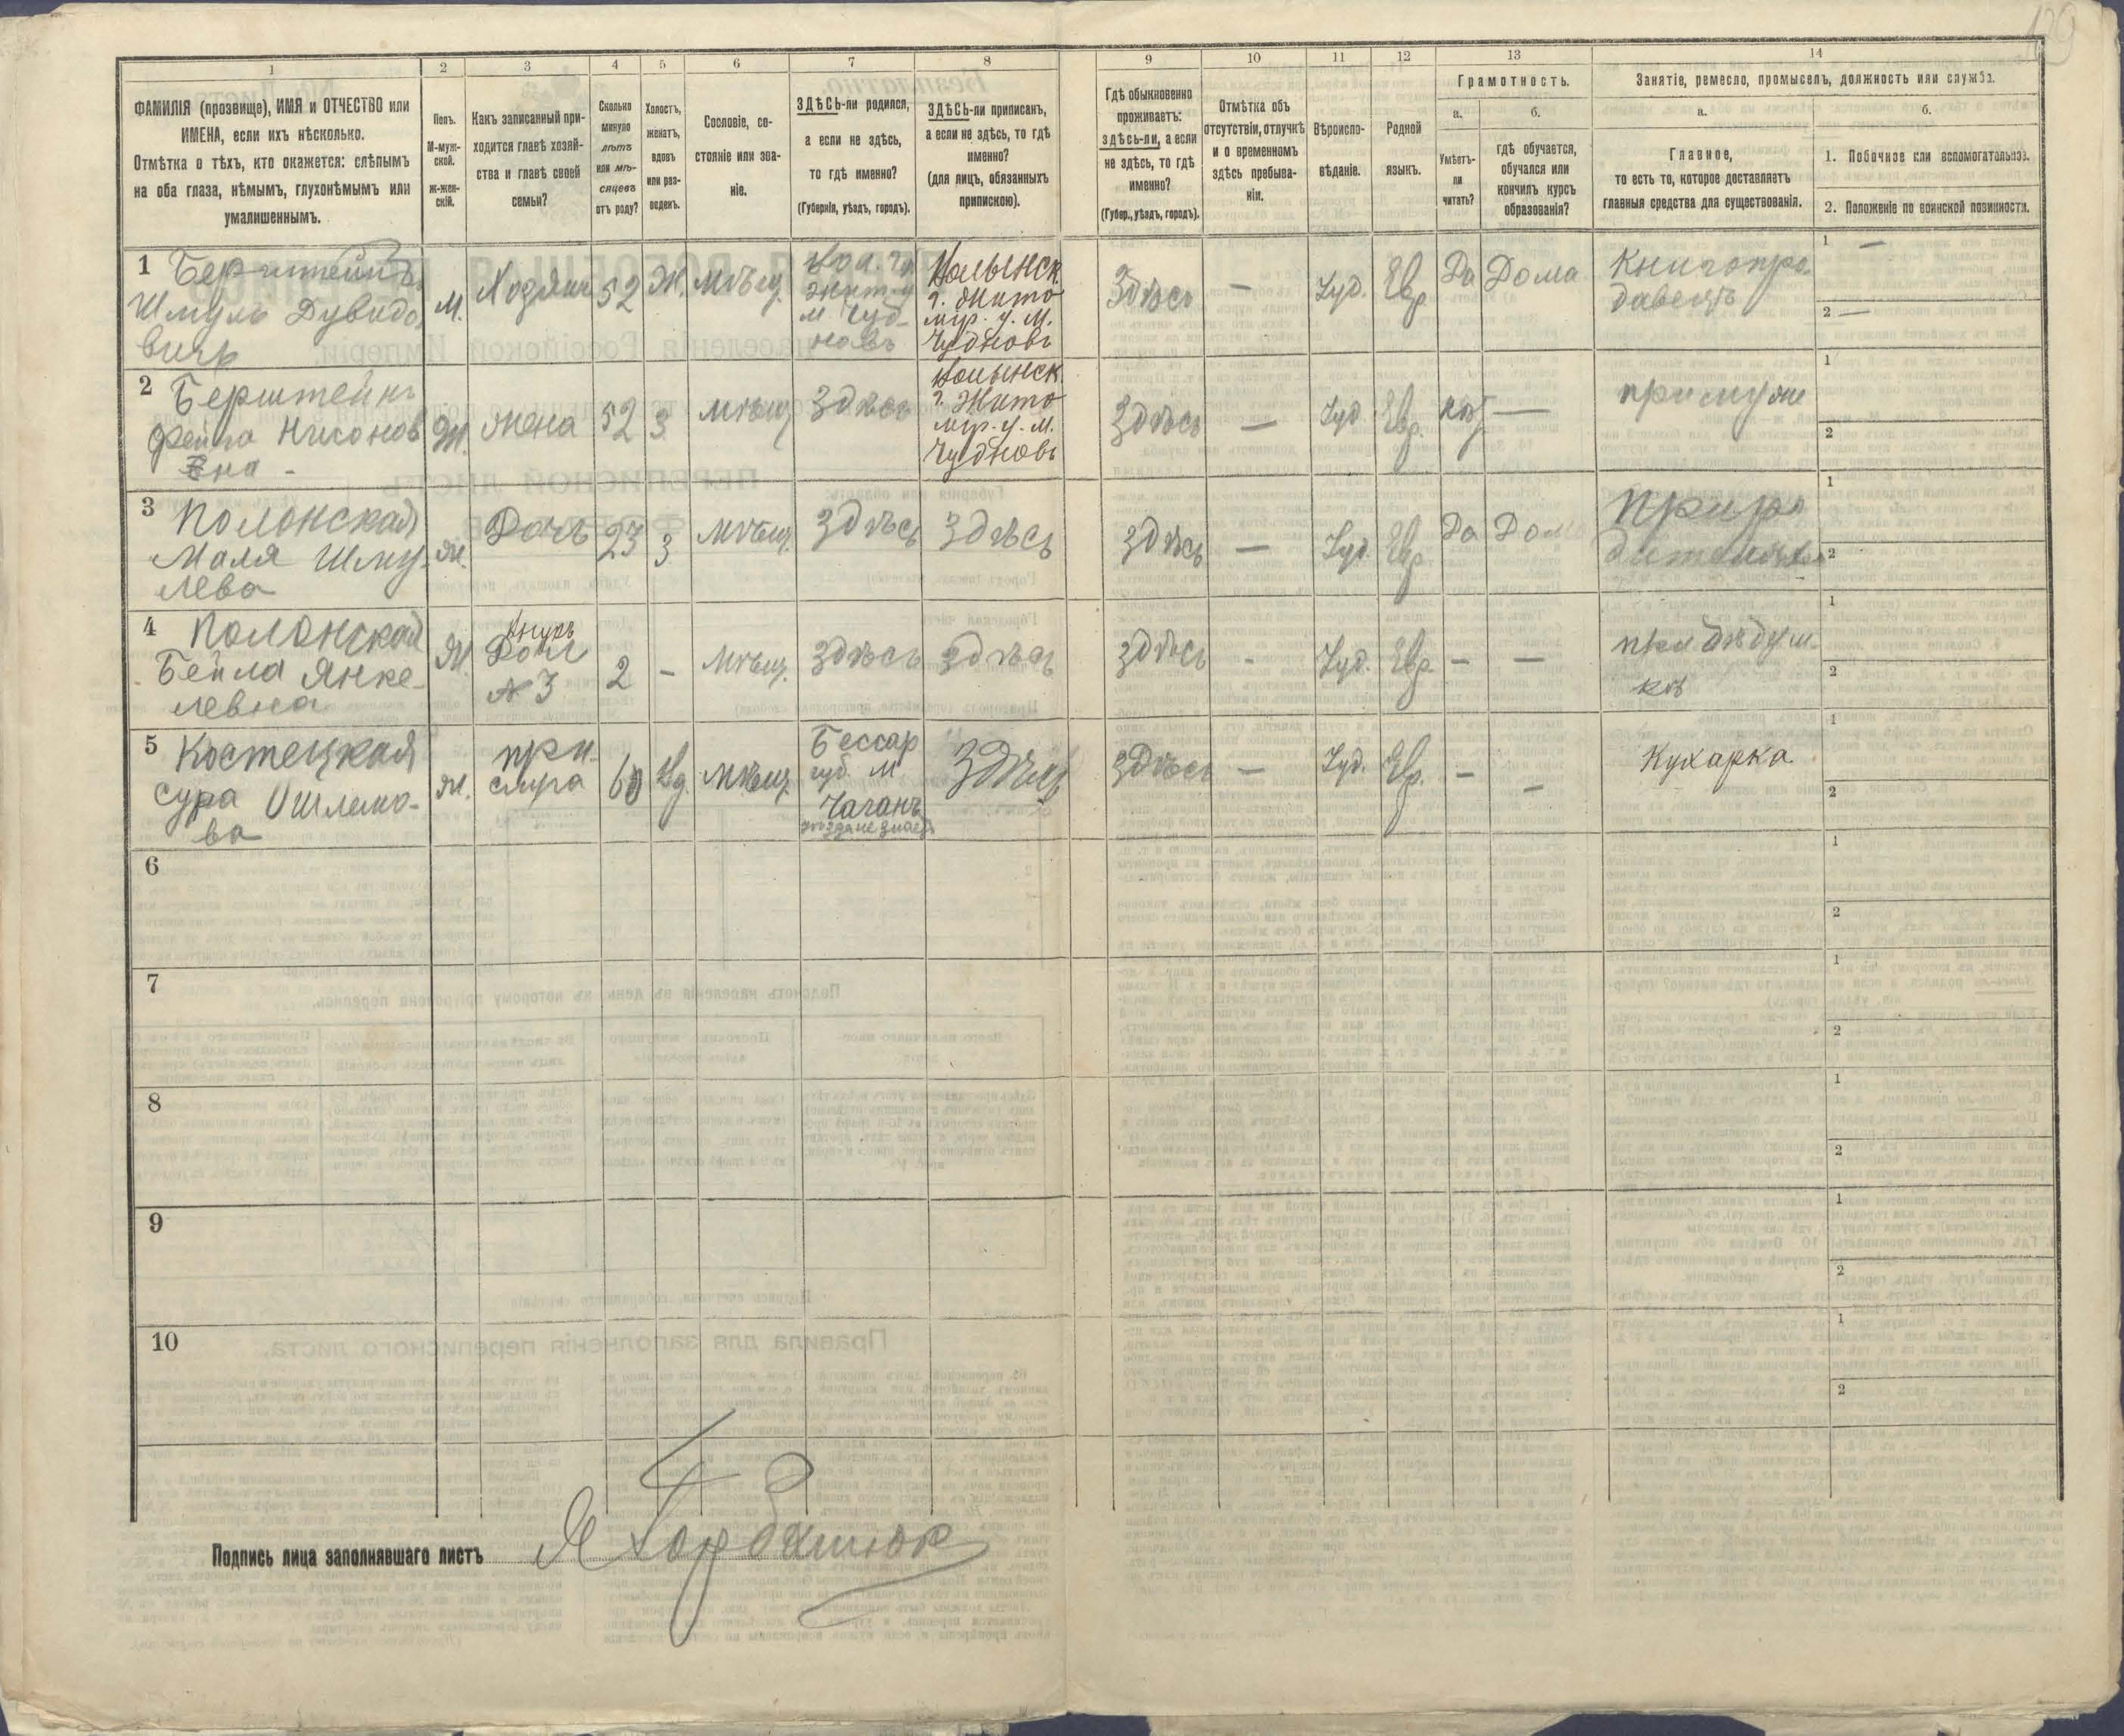 1 2 3 4 5 6 7 8 9 10 11 12 13 14
ФАМИЛІЯ (прозвище), ИМЯ и ОТЧЕСТВО или
ИМЕНА, если ихъ нѣсколько.
Отмѣтка о тѣхъ, кто окажется: слѣпымъ
на оба глаза, нѣмымъ, глухонѣмымъ или
умалишеннымъ.
Полъ.
М-муж-
ской.
ж-жен-
скій.
Какъ записанный при-
ходится главѣ хозяй-
ства и главѣ своей
семьи?
Сколько
минуло
лѣтъ
или мѣ-
сяцевъ
отъ роду?
Холостъ,
женатъ,
вдовъ
или раз-
веденъ.
Сословіе, со-
стояніе или зва-
ніе.
ЗДѢСЬ-ли родился,
а если не здѣсь,
то гдѣ именно?
(Губернія, уѣздъ, городъ).
ЗДѢСЬ-ли приписанъ,
а если не здѣсь, то гдѣ
именно?
(для лицъ, обязанныхъ
припискою).
Гдѣ обыкновенно
проживаетъ:
здѣсь-ли, а если
не здѣсь, то гдѣ
именно?
(Губер., уѣздъ, городъ).
Отмѣтка объ
отсутствіи, отлучкѣ
и о временномъ
здѣсь пребыва-
ніи.
Вѣроиспо-
вѣданіе.
Родной
языкъ.
Грамотность.
а.
Умѣетъ-
ли
читать?
б.
гдѣ обучается,
обучался или
кончилъ курсъ
образованія?
Занятіе, ремесло, промыселъ, должность или служба.
а.
Главное,
то есть то, которое доставляетъ
главныя средства для существованія.
б.
1. Побочное или вспомогательное.
2. Положеніе по воинской повинности.
1 Берштейнъ
Шмуль Дувидо
вичъ
М.
Хозяинъ
52
Ж.
мѣщ.
Вол. гу
Жит. у
м Чуд-
новъ
Волынск.
г. Жито
мір. у. М.
Чудновъ
Здѣсь
—
Іуд.
Евр
Да
Дома
Книгопро
давецъ
1 —
2 —
2 Берштейнъ
Фейга Нисонов
на -
Ж.
жена
52
З
мѣщ
Здѣсь
Волынск.
г. Жито
мір. у. М.
Чудновъ
Здѣсь
—
Іуд
Евр.
нѣт
—
при мужѣ
1
2
3 Полонская
Маля Шму-
лева
ж.
Дочь
23
З
мѣщ.
Здѣсь
Здѣсь
Здѣсь
—
Іуд
Евр
Да
Дома
При ро
дителяхъ
1
2
4 Полонская
Бейла Янке-
левна
Ж.
Внучъ
Дочь
№ 3
2
-
мѣщ.
Здѣсь
Здѣсь
Здѣсь
-
Іуд.
Евр.
-
—
при дѣдуш-
кѣ
1
2
5 Костецкая
Сура Ошлемо-
ва
ж.
при-
слуга
60
Вд.
мѣщ.
Бессар
губ. м.
Чаганъ
уѣзда не знает
Здѣсь
Здѣсь
—
Іуд.
Евр.
-
-
Кухарка
1
2
6
1
2
7
1
2
8
1
2
9
1
2
10
1
2
Подпись лица заполнявшаго листъ